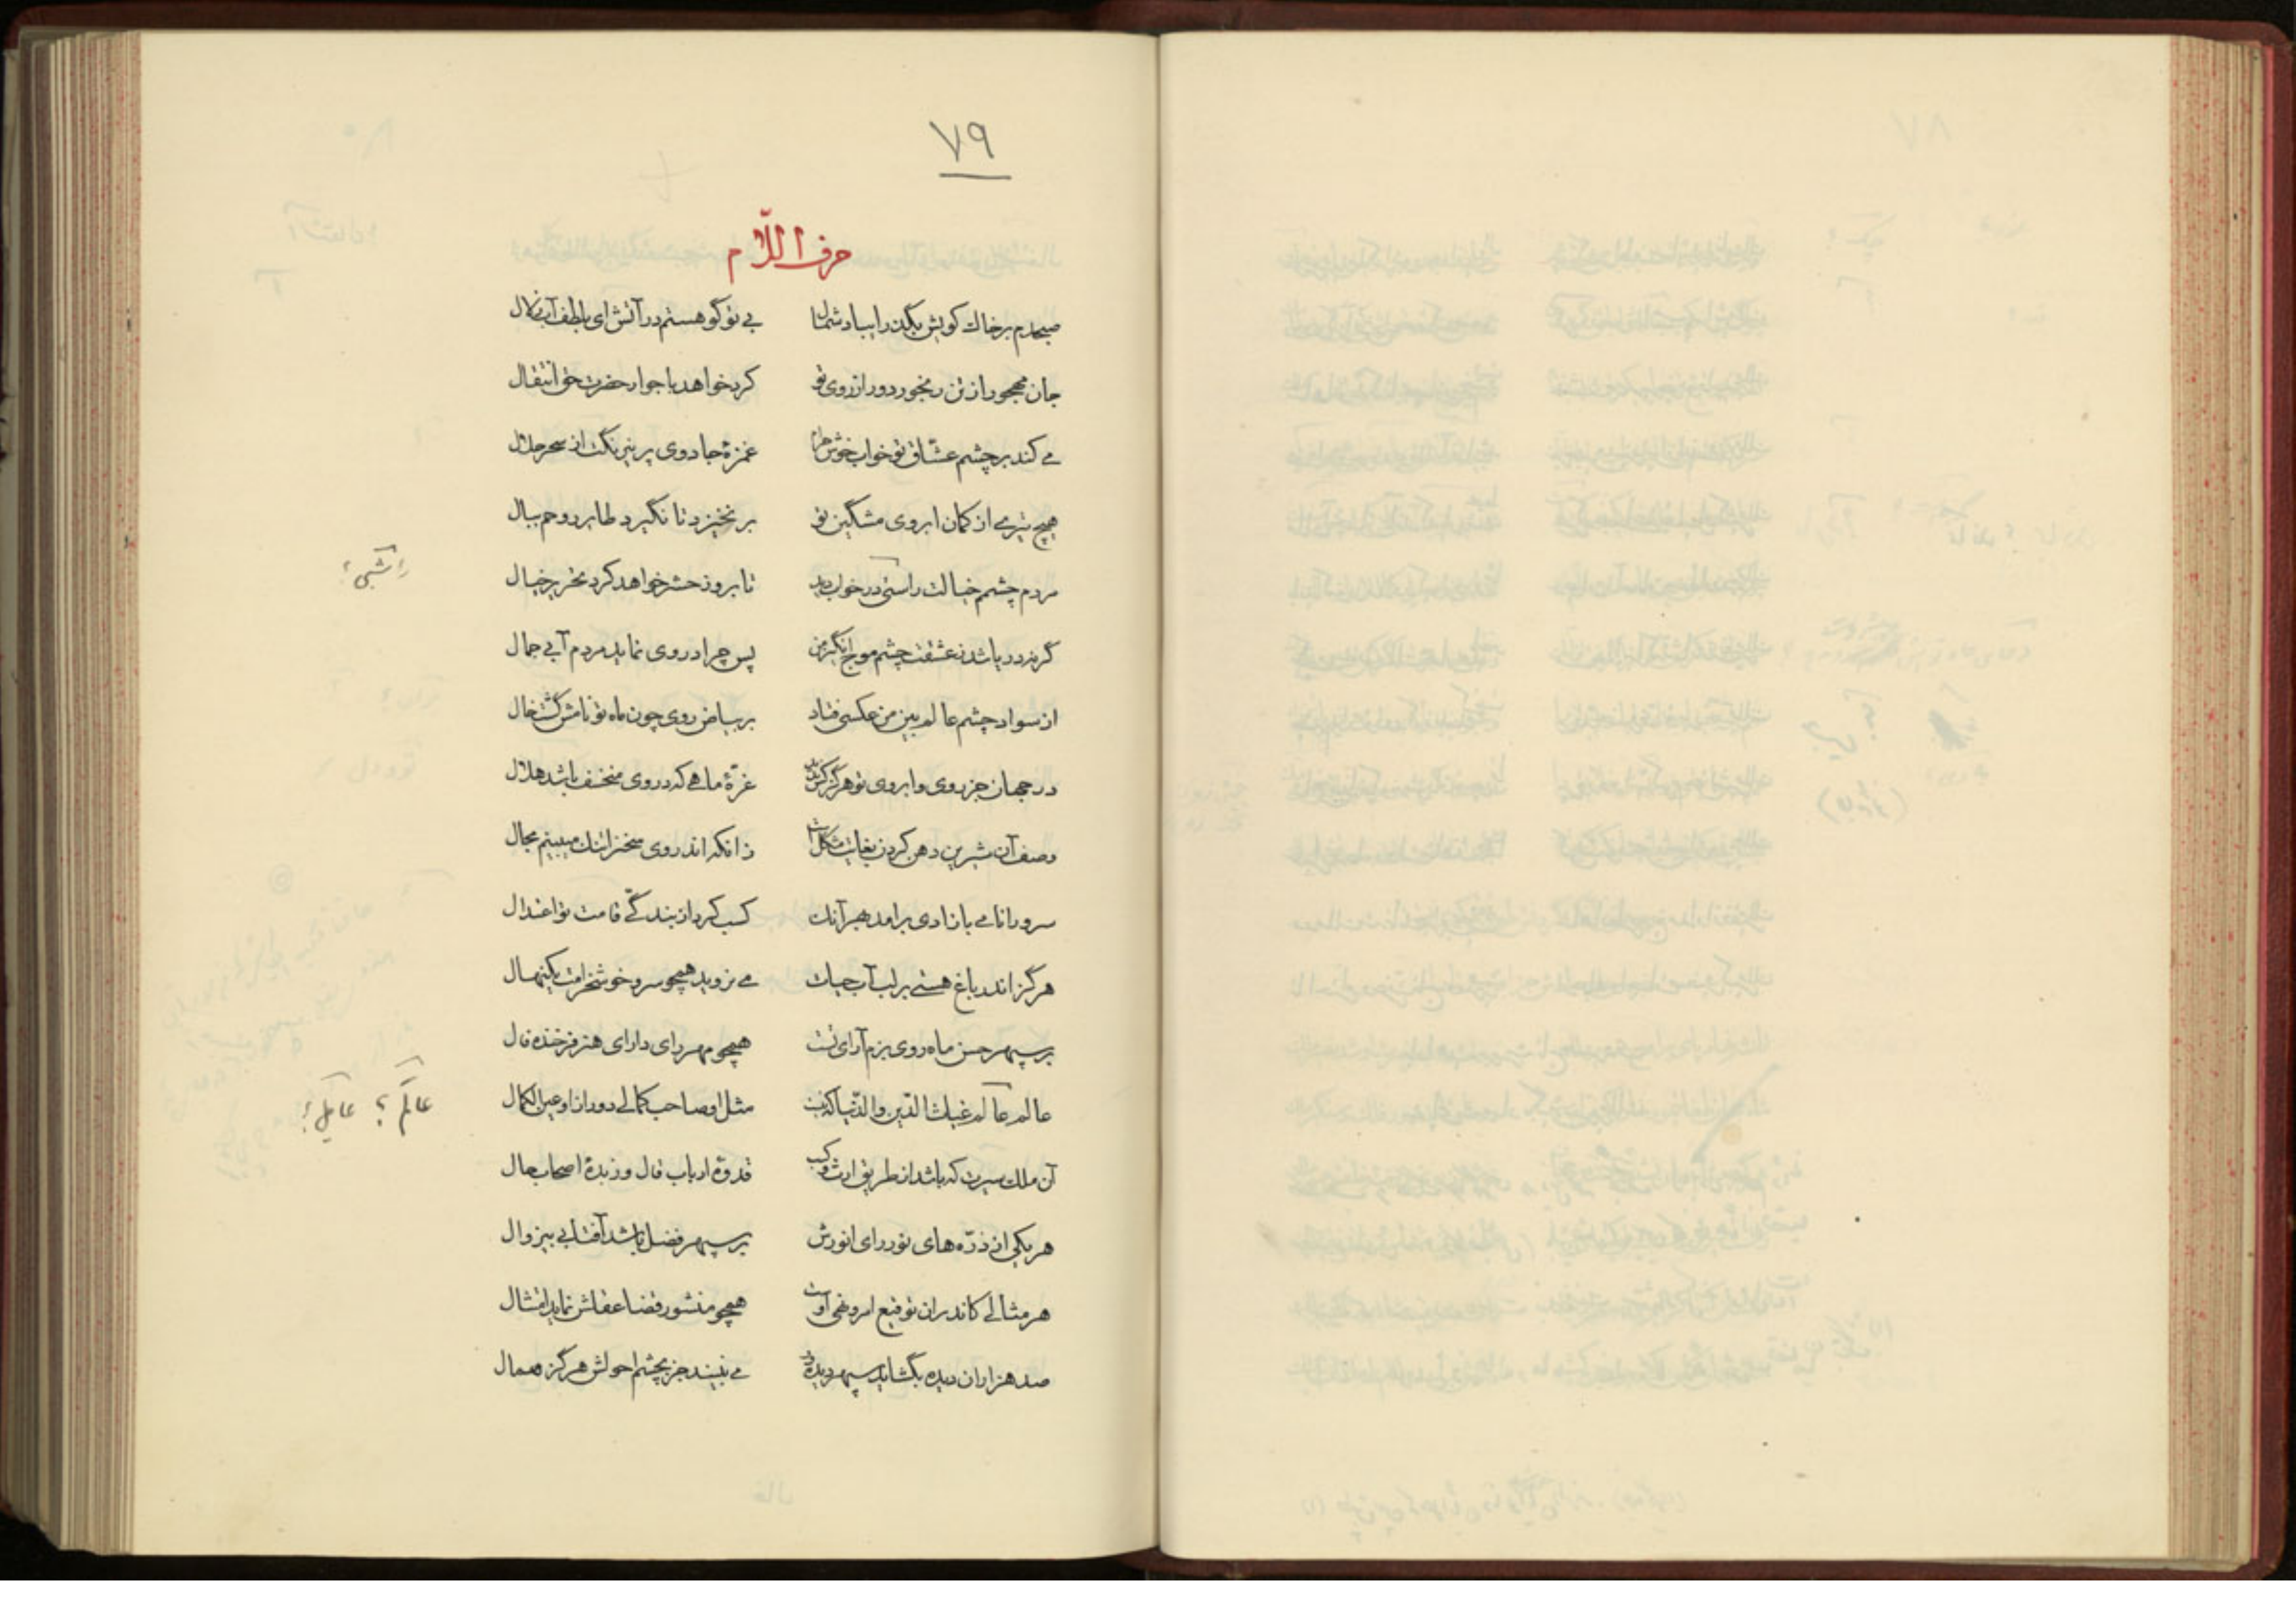 ٧٩
حرف اللّام
صبحدم بر خاك كويش بگذر ای باد شمال بی تو گو هستم در آتش ای بلطف آب زلال
جان مهجور از تن رنجور دور از روی تو کرد خواهد با جوار حضرت حق انتقال
می کند بر چشم عشّاق تو خواب خوش حرام غمزهٔ جادوی پر نیرنگت از سحر حلال
هیچ تیری از کمان ابروی مشگین تو بر نخیزد تا نگیرد طایر روحم ببال
مردم چشم خیالت راستی در خواب دید تا بروز حشر خواهد کرد تحریر خیال
راشبی؟
گر نه دریا شد ز عشقت چشم موج انگیز من پس چرا در وی نماید مردم آبی جمال
از سواد چشم عالم بین من عکسی فتاد بر بیاض روی چون ماه تو نامش گشت خال
در جهان جز روی و ابروی تو هرگز کس ندید غرّهٔ ماهی که در وی منخسف باشد هلال
وصف آن شیرین دهن کردن بغایت مشکل است زانکه اندر وی سخن را تنك میبینم مجال
سرو را نامی بازادی برامد بهر آنك کسب کرد از بندگی قامت تو اعتدال
هرگز اندر باغ هستی بر لب آب حیات می نروید همچو سرو خوشخرامت یکنهال
بر سپهر حسن ماه روی بزم آرای تست همچو مهر رای دارای هنر فرخنده فال
عالم عالم غیاث الدّین والدّنیا که نیست مثل او صاحب کمالی دور ازو عین الکمال
عالم؟ عایل؟
آن ملك سیرت که باشد از طریق ارث و کسب قدوهٔ ارباب قال و زبدهٔ اصحاب حال
هر یکی از ذرّه های نور رای انورش بر سپهر فضل باشد آفتابی بیزوال
هر مثالی کاندران توقیع امر و نهی اوست همچو منشور قضا عقلش نماید امتثال
صد هزاران دیده بگشاید سپهر و دیده ور می نبیند جز بچشم احولش هرگز همال